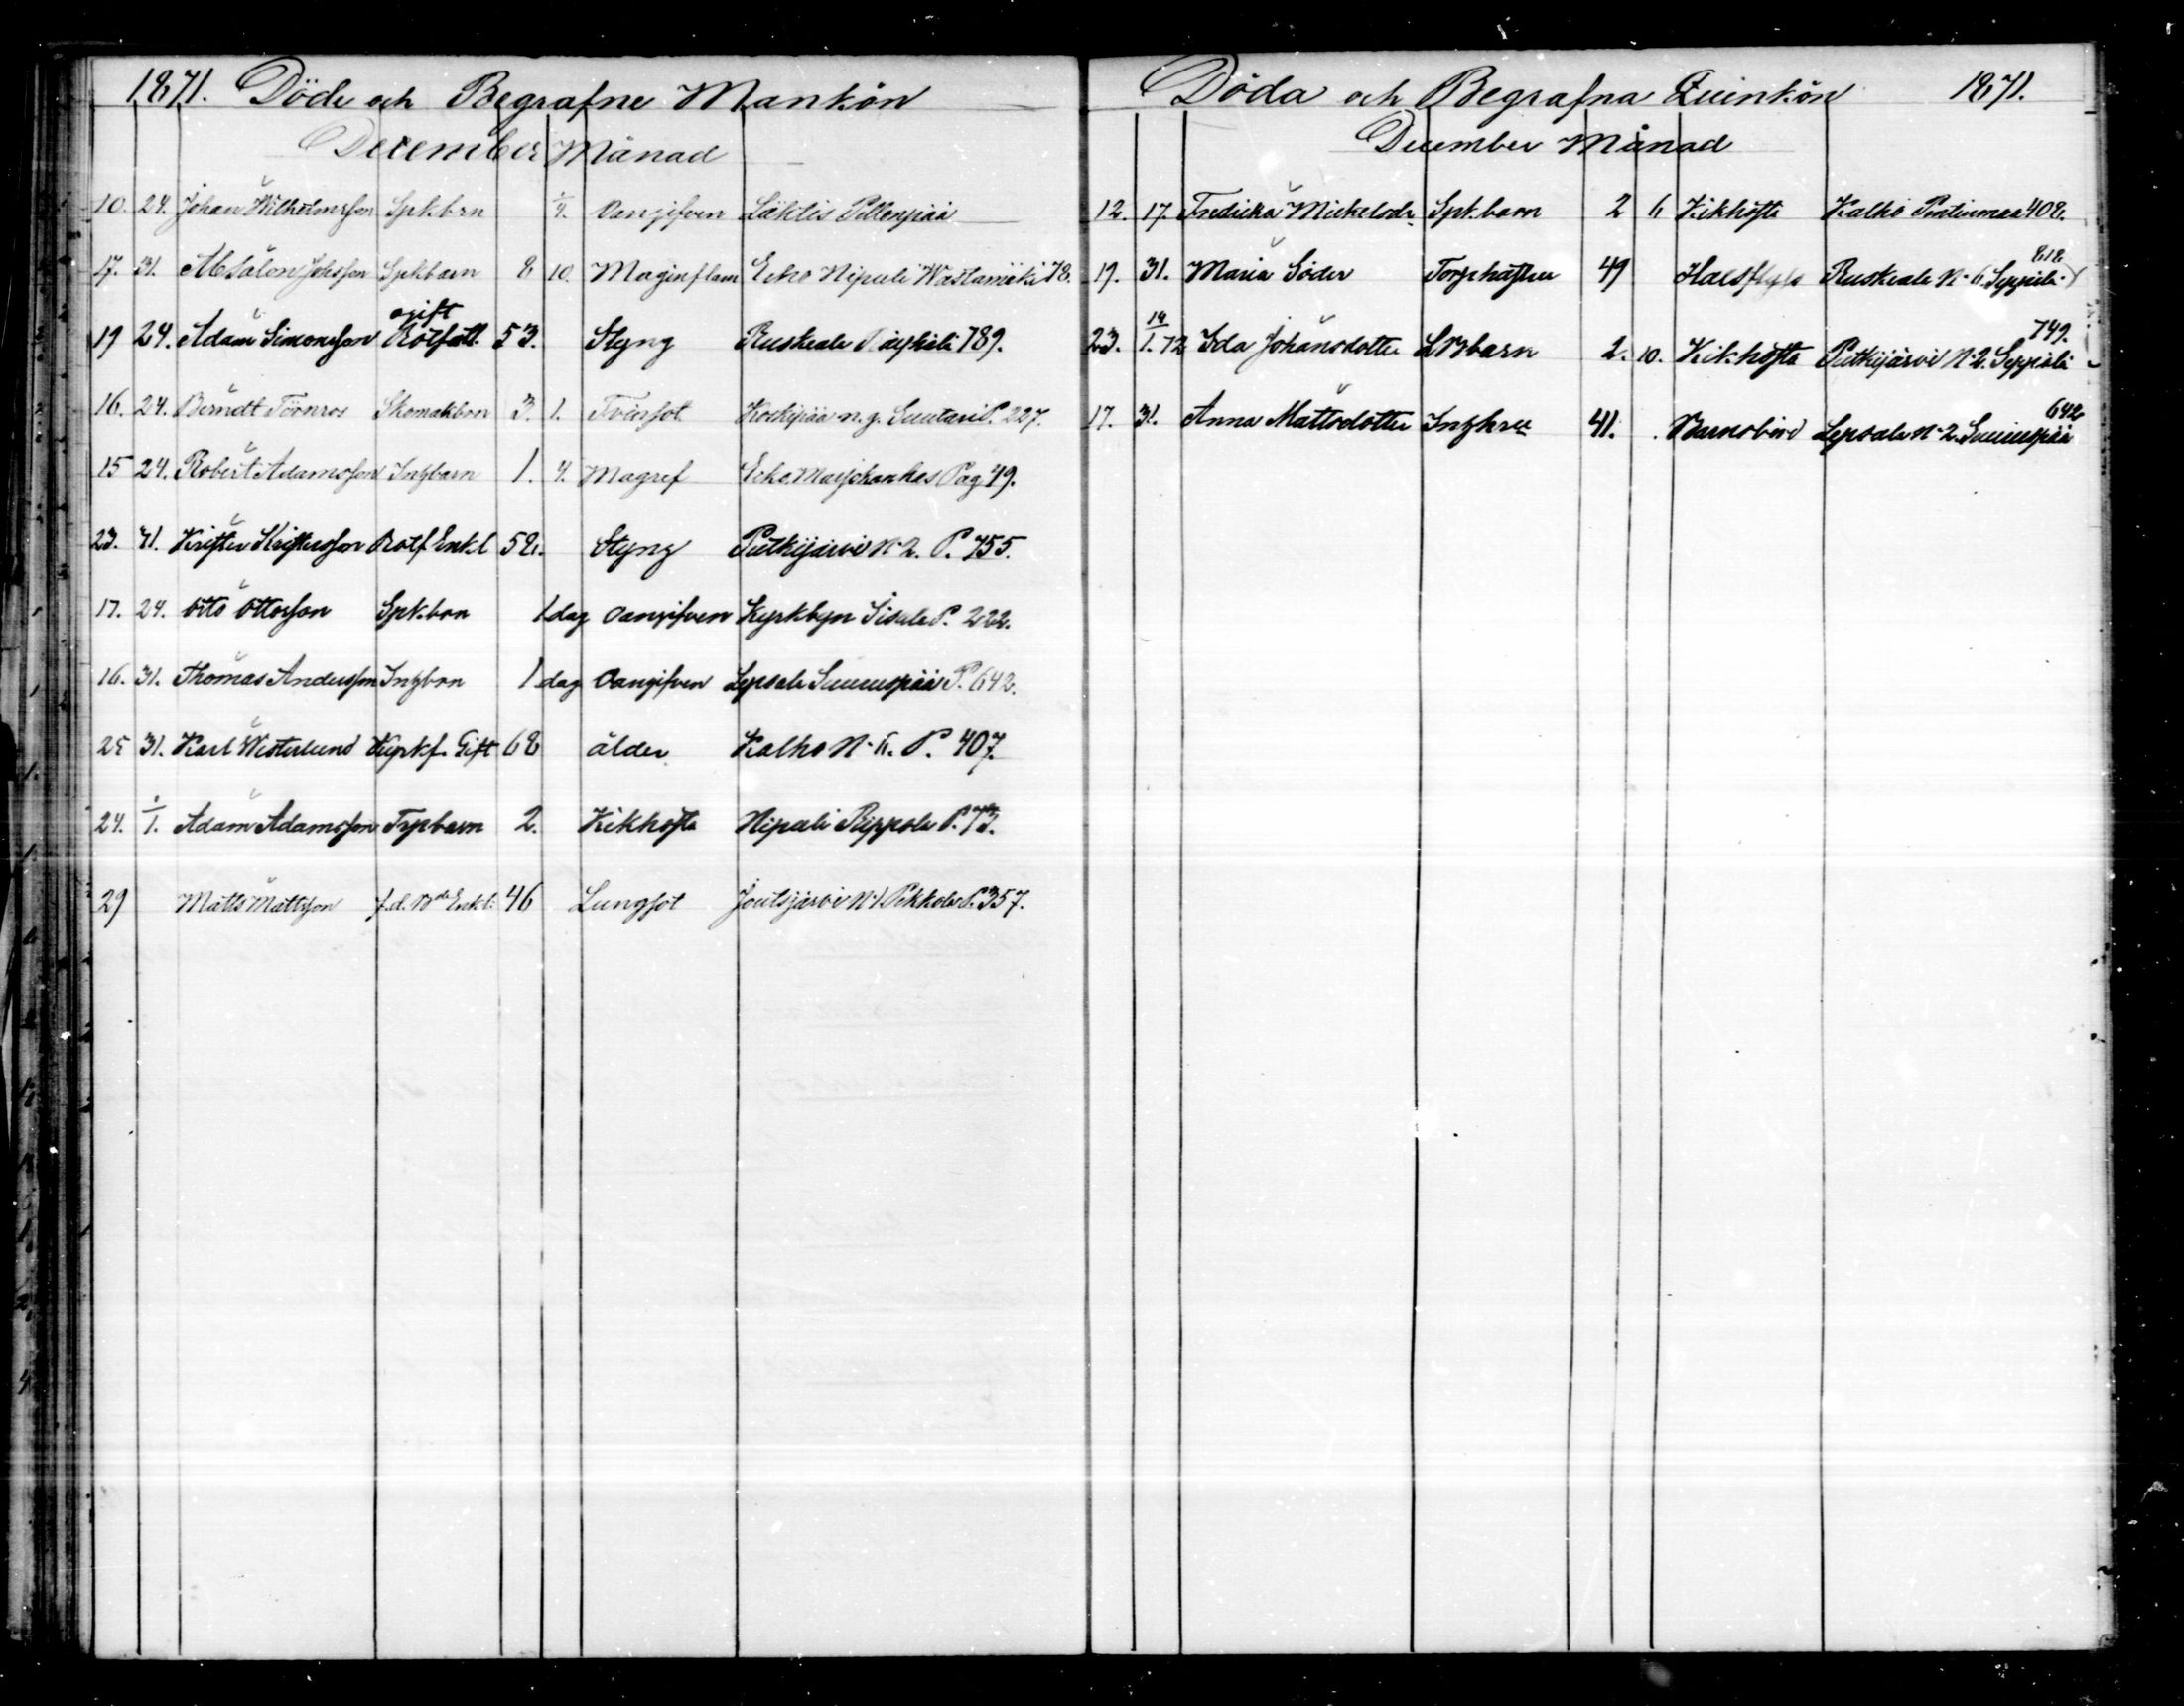 1871. Döde och Begrafne Mankön
December Månad
10. 24. Johan Wilhelmsson Spkbrn 1/4. Oangifven Läktis Pillenpää
17. 31. Absalon Johsson Spkbarn 8 10. Maginflam Erho Nipuli Wästamäki 78.
19 24. Adam Simonsson ogift Rotfatt. 53. Styng Ruskeala 789.
16. 24. Berndt Törnros Skomakbrn 3. 1. Tvinsot Koskipää n.g. Suutari P. 227.
15 24. Robert Adamsson Inhbarn 1. 4. Magref Erho Pag 49.
23. 31. Krister Kristersson Rotf Enkl 58. Styng Putkijärvi N-2. P. 755.
17. 24. Otto Ottosson Spk.brn 1 dag Oangifven Kyrkbyn P. 222.
16. 31. Thomas Andersson Inhbrn 1 dag Oangifven Lepsala P. 642.
25 31. Karl Westerlund Kyrkf. Gift 68 ålder Kalho P. 407.
24. 1. Adam Adamsson Trpbarn 2. Kikhosta Nipuli Reppola P. 73.
29 Matts Mattsson f.d. Bde Enkl. 46 Lungsot Joutsjärvi N-1 Pekkola P. 357.
Döda och Begrafna Quinkön 1871.
December Månad
12. 17. Fredrika Mickelsdr Spk.barn 2 6 Kikhosta Kalho Pentinmaa 408.
19. 31. Maria Söder Torphustru 49 Ruskeala N-6. Seppälä 818
23. 14/1. 72 Ida Johansdotter LBbarn 2. 10. Kikhosta Putkijärvi N-2. Seppälä 749.
17. 31. Anna Mattsdotter Inhhru 41. Barnsbörd Lepsala N-2. 642